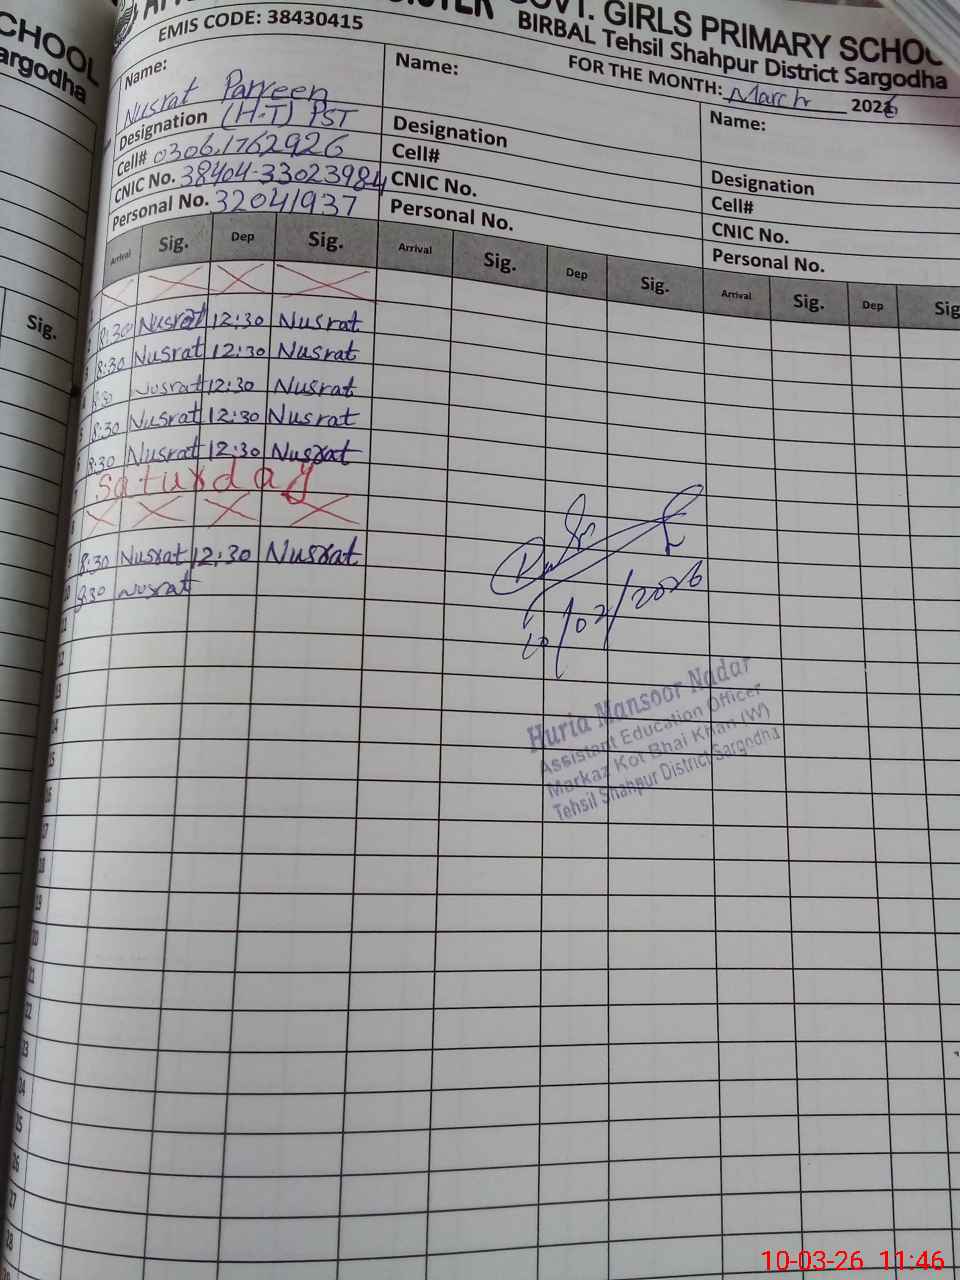 CHOOL
argodha
Sig.
GOVT. GIRLS PRIMARY SCHOO
EMIS CODE: 38430415
BIRBAL Tehsil Shahpur District Sargodha
FOR THE MONTH: March 2026
Name:
Nusrat Parveen
Designation (H.T) PST
Cell# 0306.1762926
CNIC No. 38404-33023984
Personal No. 32041937
Name:
Designation
Cell#
CNIC No.
Personal No.
Name:
Designation
Cell#
CNIC No.
Personal No.
Arrival Sig. Dep Sig. Arrival Sig. Dep Sig. Arrival Sig. Dep Sig
8:30 Nusrat 12:30 Nusrat
3 8:30 Nusrat 12:30 Nusrat
4 8:30 Nusrat 12:30 Nusrat
5 8:30 Nusrat 12:30 Nusrat
6 8:30 Nusrat 12:30 Nusrat
7 Saturday
8
9 8:30 Nusrat 12:30 Nusrat
10 8:30 Nusrat
11
12
13
14
15
16
17
18
19
20
21
22
23
24
25
26
27
28
10/03/2026
Huria Mansoor Nadar
Assistant Education Officer
Markaz Kot Bhai Khan (W)
Tehsil Shahpur District Sargodha
10-03-26 11:46